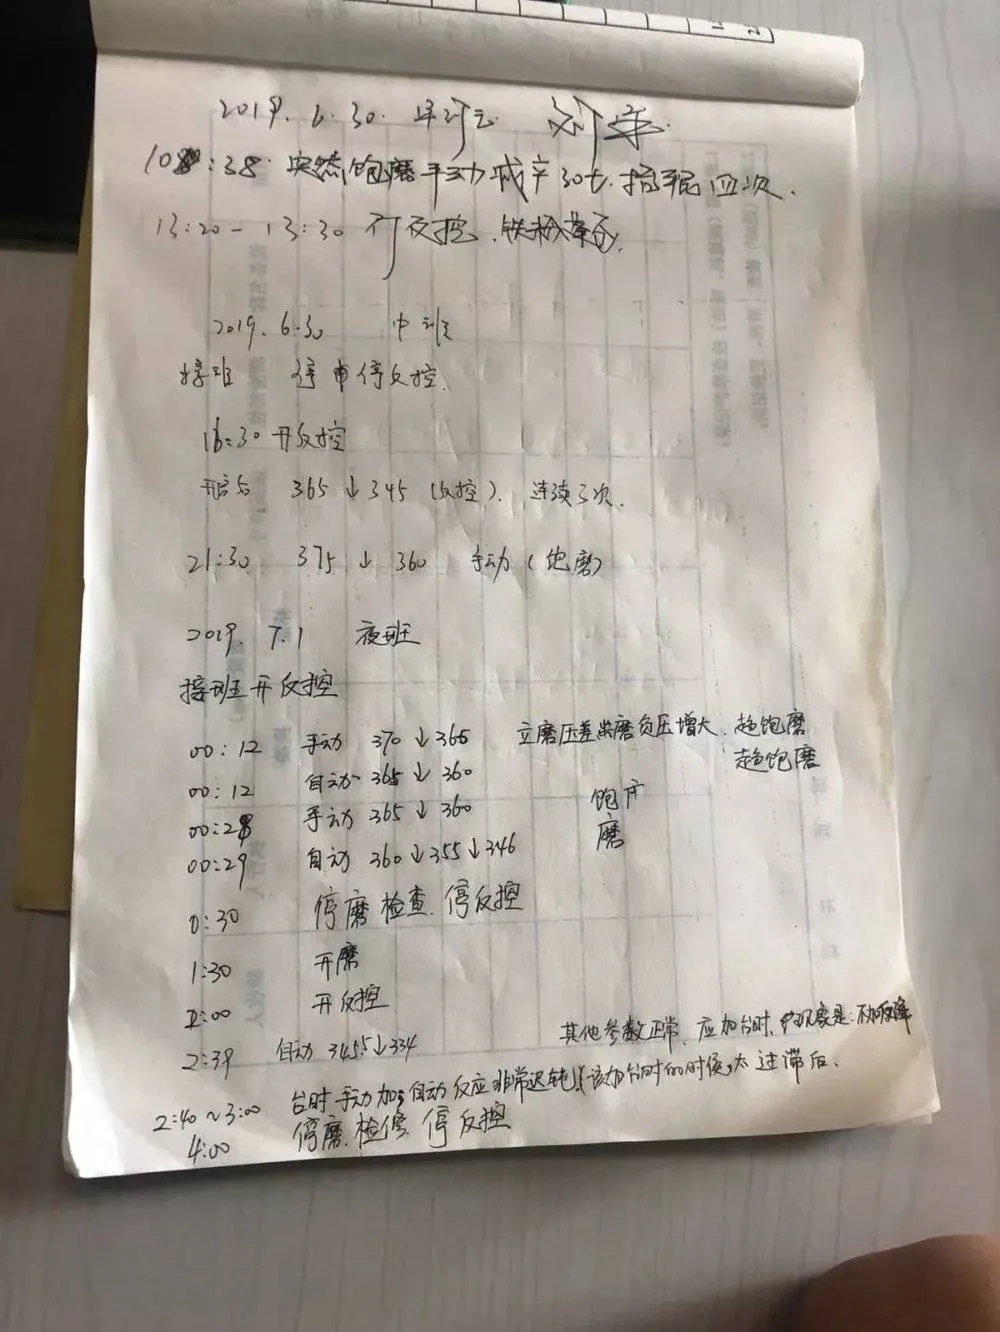 2019.6.30. 早班
10:38. 突然饱磨手动减产30t. 抬辊四次.
13:20-13:30 反控. 铁粉
2019.6.30 中班
接班 停反控.
16:30 开反控
开启后 365↓345 (反控). 连续3次.
21:30 375↓360 手动(饱磨)
2019.7.1 夜班
接班开反控
00:12 手动 370↓365 立磨压差出磨负压增大. 趋饱磨
00:12 自动 365↓360 趋饱磨
00:28 手动 365↓360 饱
00:29 自动 360↓355↓346 磨
0:30 停磨检查. 停反控
1:30 开磨
2:00 开反控
2:39 自动 345.5↓334 其他参数正常, 应加台时, 现象是: 不加反降
2:40~3:00 台时手动加, 自动反应非常迟钝!该加台时的时候, 太过滞后.
4:00 停磨.检修. 停反控